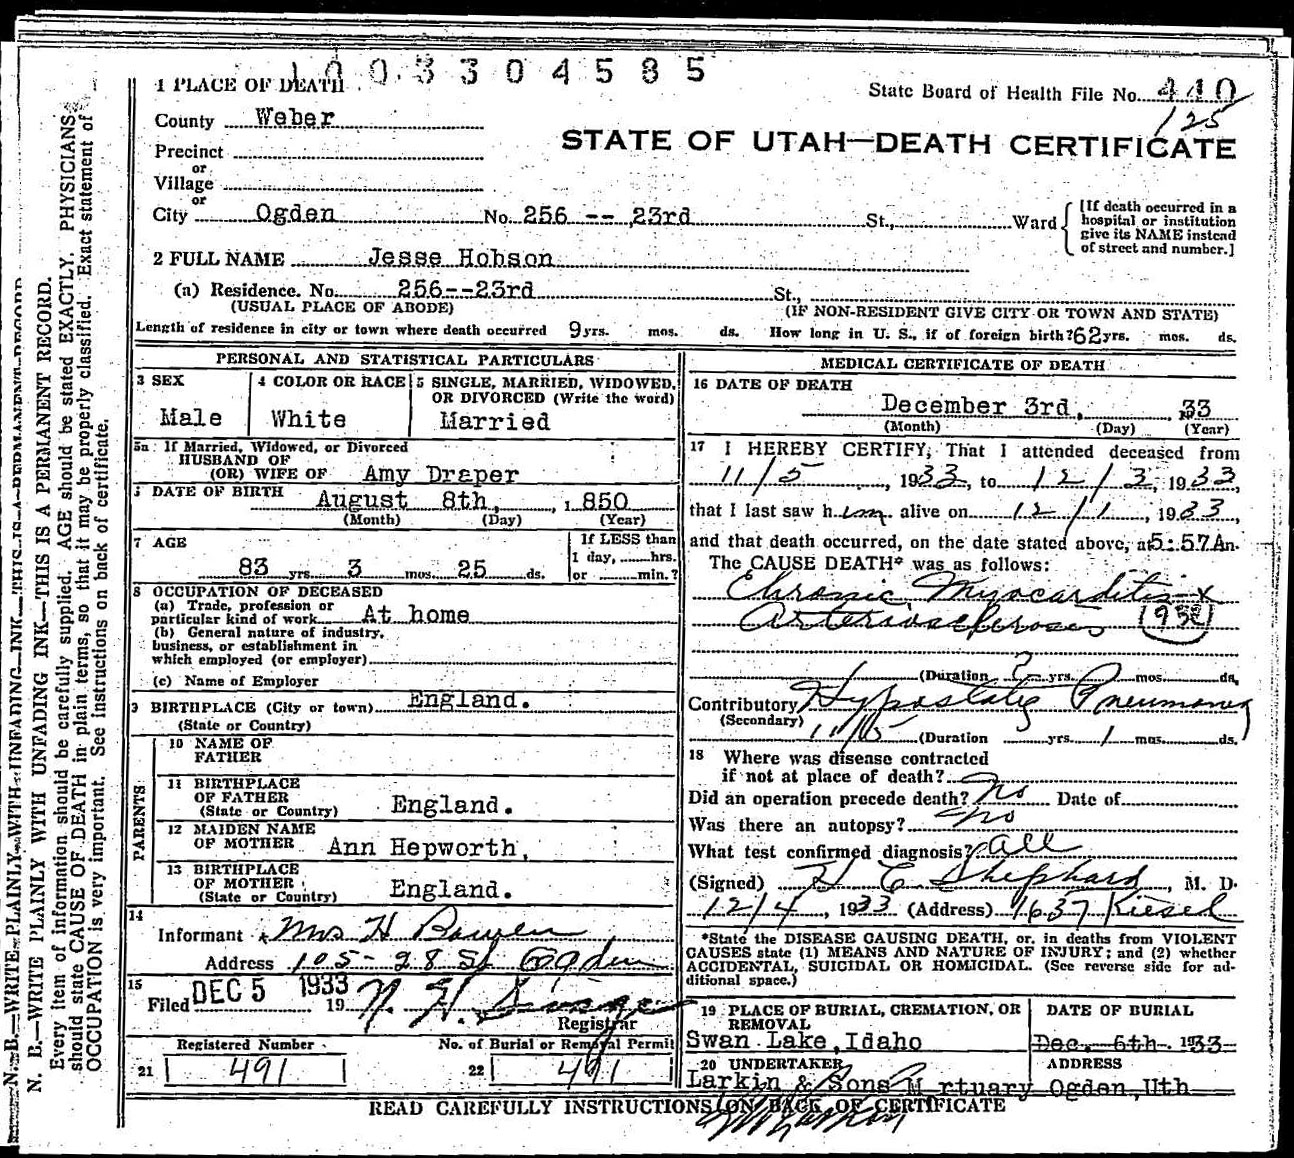 1003304585
1 PLACE OF DEATH
State Board of Health File No. 440
125
County Weber
STATE OF UTAH—DEATH CERTIFICATE
Precinct
or
Village
or
City Ogden No. 256 -- 23rd St., Ward
[If death occurred in a hospital or institution give its NAME instead of street and number.]
2 FULL NAME Jesse Hobson
(a) Residence. No. 256--23rd St.,
(USUAL PLACE OF ABODE) (IF NON-RESIDENT GIVE CITY OR TOWN AND STATE)
Length of residence in city or town where death occurred 9 yrs. mos. ds. How long in U. S., if of foreign birth? 62 yrs. mos. ds.
PERSONAL AND STATISTICAL PARTICULARS
3 SEX
Male
4 COLOR OR RACE
White
5 SINGLE, MARRIED, WIDOWED, OR DIVORCED (Write the word)
Married
5a If Married, Widowed, or Divorced
HUSBAND OF
(OR) WIFE OF Amy Draper
DATE OF BIRTH August 8th, 1850
(Month) (Day) (Year)
7 AGE
If LESS than
1 day, hrs.
or min.?
83 yrs. 3 mos. 25 ds.
8 OCCUPATION OF DECEASED
(a) Trade, profession or
particular kind of work At home
(b) General nature of industry,
business, or establishment in
which employed (or employer)
(c) Name of Employer
9 BIRTHPLACE (City or town) England.
(State or Country)
PARENTS
10 NAME OF
FATHER
11 BIRTHPLACE
OF FATHER
(State or Country) England.
12 MAIDEN NAME
OF MOTHER Ann Hepworth,
13 BIRTHPLACE
OF MOTHER
(State or Country) England.
14
Informant Mrs H Bowen
Address 105 - 28 St Ogden
15
Filed DEC 5 1933 19
N. H.
Registrar
Registered Number No. of Burial or Removal Permit
21 491 22 491
MEDICAL CERTIFICATE OF DEATH
16 DATE OF DEATH
December 3rd, 33
(Month) (Day) (Year)
17 I HEREBY CERTIFY, That I attended deceased from
11/5, 1933, to 12/3, 1933,
that I last saw him alive on 12/1, 1933,
and that death occurred, on the date stated above, at 5:57A m.
The CAUSE DEATH* was as follows:
Chronic Myocarditis x
Arteriosclerosis
(Duration ? yrs. mos. ds.
Contributory Hypostatic Pneumonia
(Secondary)
11/5 (Duration yrs. 1 mos. ds.)
18 Where was disease contracted
if not at place of death? no
Did an operation precede death? no Date of
Was there an autopsy? no
What test confirmed diagnosis? all
(Signed) H E Shephard, M. D.
12/4, 1933 (Address) 1637 Kiesel
*State the DISEASE CAUSING DEATH, or, in deaths from VIOLENT
CAUSES state (1) MEANS AND NATURE OF INJURY; and (2) whether
ACCIDENTAL, SUICIDAL OR HOMICIDAL. (See reverse side for ad-
ditional space.)
19 PLACE OF BURIAL, CREMATION, OR
REMOVAL
Swan Lake, Idaho
DATE OF BURIAL
Dec. 6th 1933
20 UNDERTAKER
Larkin & Sons M rtuary
ADDRESS
Ogden, Uth
READ CAREFULLY INSTRUCTIONS ON BACK OF CERTIFICATE
N. B.—WRITE PLAINLY WITH UNFADING INK—THIS IS A PERMANENT RECORD
N. B.—WRITE PLAINLY WITH UNFADING INK—THIS IS A PERMANENT RECORD.
Every item of information should be carefully supplied. AGE should be stated EXACTLY. PHYSICIANS
should state CAUSE OF DEATH in plain terms, so that it may be properly classified. Exact statement of
OCCUPATION is very important. See instructions on back of certificate.